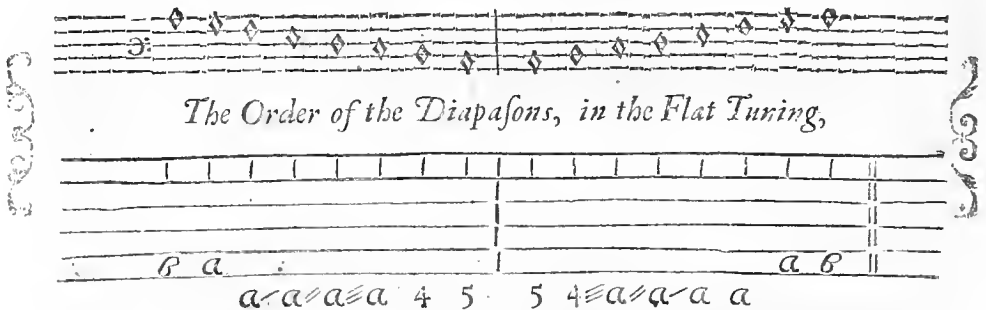 The Order of the Diapaſons, in the Flat Tuning,
B a a B
a a a a 4 5 5 4 a a a a